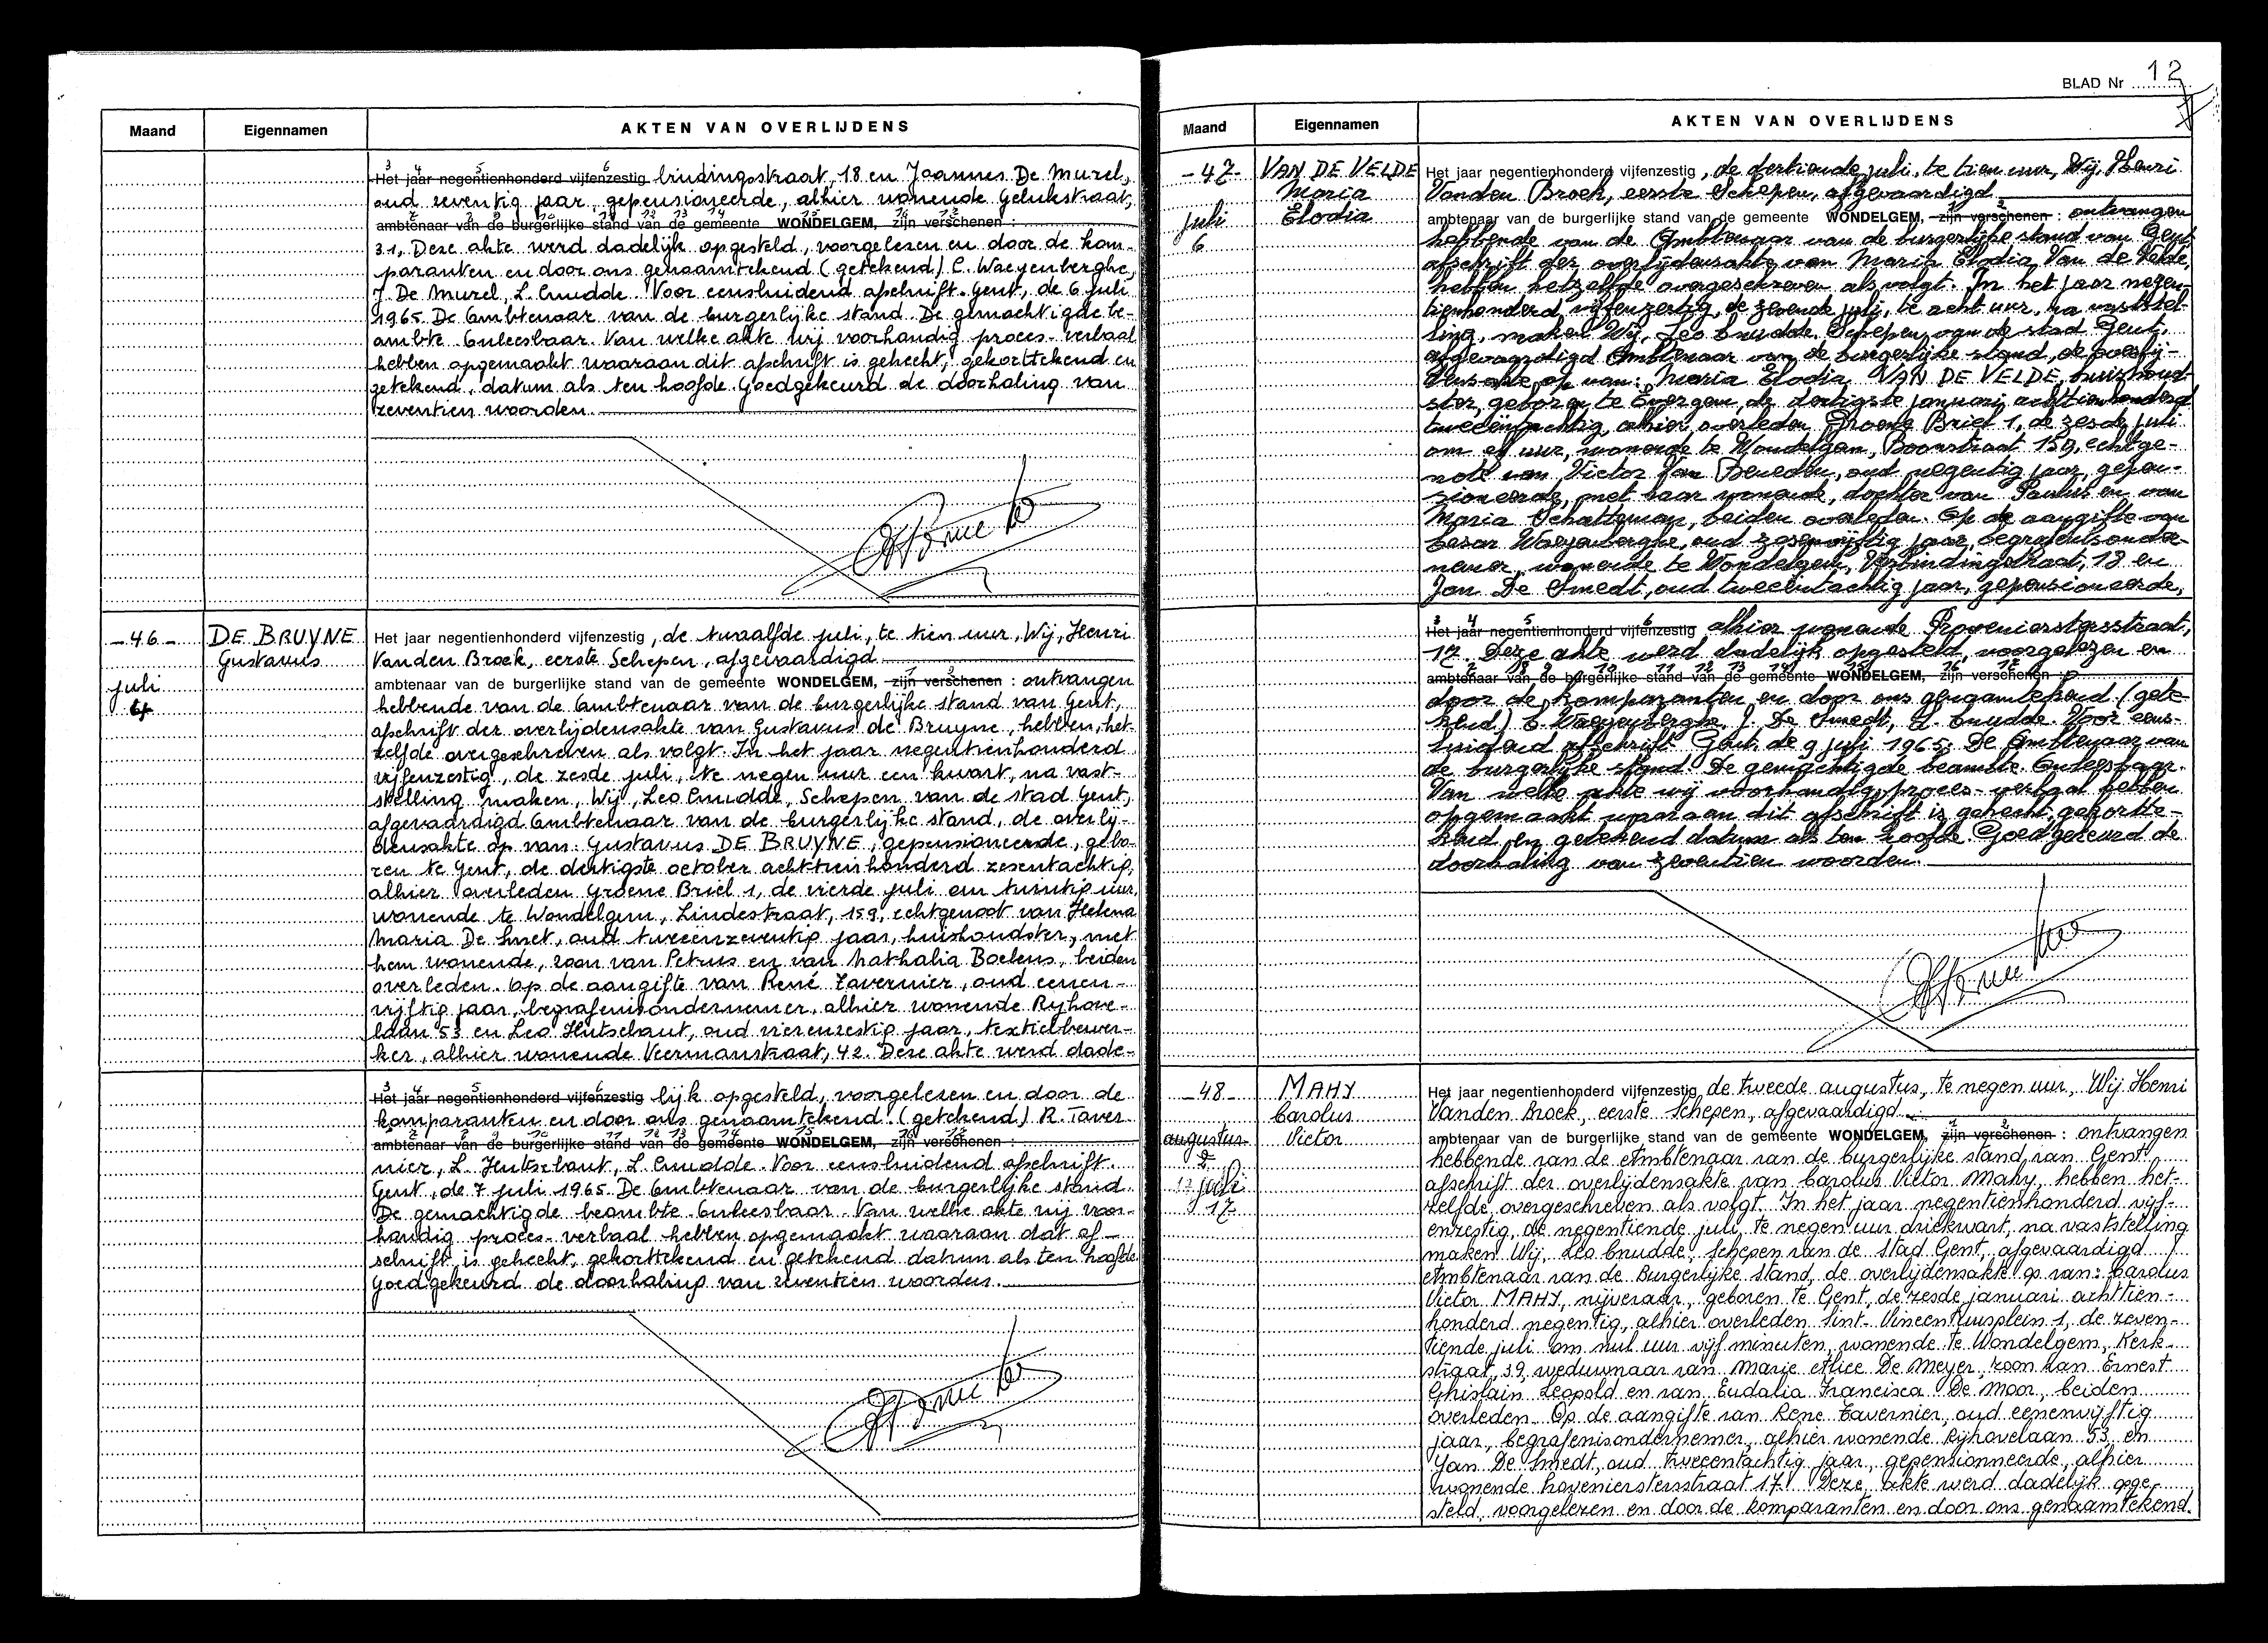 Maand Eigennamen AKTEN VAN OVERLIJDENS
3 4 5 6
Het jaar negentienhonderd vijfenzestig bindingsstraat, 18 en Joannes De Muzel,
oud zeventig jaar, gepensioneerde, alhier wonende Gelukstraat,
ambtenaar van de burgerlijke stand van de gemeente WONDELGEM, zijn verschenen :
31, Deze akte werd dadelijk opgesteld, voorgelezen en door de kom-
paranten en door ons genaamtekend (getekend) C. Waeyenberghe,
J. De Muzel, L. Cnudde. Voor eensluidend afschrift. Gent, de 6 juli
1965. De Ambtenaar van de burgerlijke stand. De gemachtigde be-
ambte Onleesbaar. Van welke akte wij voorhandig proces-verbaal
hebben opgemaakt waaraan dit afschrift is gehecht, gekorttekend en
getekend, datum als ten hoofde. Goedgekeurd de doorhaling van
zeventien woorden.
-46- DE BRUYNE Het jaar negentienhonderd vijfenzestig, de twaalfde juli, te tien uur, Wij, Henri
Gustavus Vanden Broek, eerste Schepen, afgevaardigd
juli ambtenaar van de burgerlijke stand van de gemeente WONDELGEM, zijn verschenen : ontvangen
4 hebbende van de Ambtenaar van de burgerlijke stand van Gent,
afschrift der overlijdensakte van Gustavus de Bruyne, hebben het-
zelfde overgeschreven als volgt. In het jaar negentienhonderd
vijfenzestig, de zesde juli, te negen uur een kwart, na vast-
stelling maken, Wij, Leo Cnudde, Schepen van de stad Gent,
afgevaardigd Ambtenaar van de burgerlijke stand, de overlij-
densakte op van: Gustavus DE BRUYNE, gepensioneerde, gebo-
ren te Gent, de dertigste october achttienhonderd zesentachtig,
alhier overleden Groene Briel 1, de vierde juli om twintig uur,
wonende te Wondelgem, Lindestraat, 159, echtgenoot van Helena
Maria De Smet, oud tweeenzeventig jaar, huishoudster, met
hem wonende, zoon van Petrus en van Nathalia Boelens, beiden
overleden. Op de aangifte van René Tavernier, oud eenen-
vijftig jaar, begrafenisondernemer, alhier wonende Ryhove-
laan 53 en Leo Hutsebaut, oud vierenzestig jaar, textielbewer-
ker, alhier wonende Veermanstraat, 42. Deze akte werd dade-
3 4 5 6
Het jaar negentienhonderd vijfenzestig lijk opgesteld, voorgelezen en door de
komparanten en door ons genaamtekend. (getekend) R. Taver
ambtenaar van de burgerlijke stand van de gemeente WONDELGEM, zijn verschenen :
nier, L. Hutsebaut, L. Cnudde. Voor eensluidend afschrift.
Gent, de 7 juli 1965. De Ambtenaar van de burgerlijke stand.
De gemachtigde beambte Onleesbaar. Van welke akte wij voor-
handig proces-verbaal hebben opgemaakt waaraan dat af-
schrift is gehecht, gekorttekend en getekend datum als ten hoofde
Goedgekeurd de doorhaling van zeventien woorden.
BLAD Nr 12
Maand Eigennamen AKTEN VAN OVERLIJDENS
-47- VAN DE VELDE Het jaar negentienhonderd vijfenzestig, de dertiende juli, te tien uur, Wij, Henri
Maria Vanden Broek, eerste Schepen, afgevaardigd
juli Elodia ambtenaar van de burgerlijke stand van de gemeente WONDELGEM, zijn verschenen : ontvangen
6 hebbende van de Ambtenaar van de burgerlijke stand van Gent
afschrift der overlijdensakte van Maria Elodia Van de Velde,
hebben hetzelfde overgeschreven als volgt. In het jaar negen-
tienhonderd vijfenzestig, de zevende juli, te acht uur, na vaststel-
ling, maken Wij, Leo Cnudde, Schepen van de stad Gent,
afgevaardigd Ambtenaar van de burgerlijke stand, de overlij-
densakte op van: Maria Elodia VAN DE VELDE, huishoud-
ster, geboren te Evergem, de dertigste januari achttienhonderd
tweeëntachtig, alhier overleden Groene Briel 1, de zesde juli
om elf uur, wonende te Wondelgem, Boonstraat 159, echtge-
note van Victor Van Beneden, oud negentig jaar, gepen-
sioneerde, met haar wonende, dochter van Paulus en van
Maria Schatteman, beiden overleden. Op de aangifte van
Cesar Waeyenberghe, oud zesenvijftig jaar, begrafenisonder-
nemer, wonende te Wondelgem, Verbindingstraat, 18 en
Jan De Smedt, oud tweeëntachtig jaar, gepensioneerde,
3 4 5 6
Het jaar negentienhonderd vijfenzestig alhier wonende Hoveniersstersstraat,
17. Deze akte werd dadelijk opgesteld, voorgelezen en
ambtenaar van de burgerlijke stand van de gemeente WONDELGEM, zijn verschenen :
door de komparanten en door ons genaamtekend (gete-
kend) C. Waeyenberghe, J. De Smedt, L. Cnudde. Voor eens-
luidend afschrift. Gent, de 9 juli 1965. De Ambtenaar van
de burgerlijke stand. De gemachtigde beambte Onleesbaar.
Van welke akte wij voorhandig proces-verbaal hebben
opgemaakt waaraan dit afschrift is gehecht, gekortte-
kend en getekend datum als ten hoofde. Goedgekeurd de
doorhaling van zeventien woorden.
-48- MAHY Het jaar negentienhonderd vijfenzestig, de tweede augustus, te negen uur, Wij Henri
Carolus Vanden Broek, eerste Schepen, afgevaardigd
augustus Victor ambtenaar van de burgerlijke stand van de gemeente WONDELGEM, zijn verschenen : ontvangen
2 hebbende van de Ambtenaar van de burgerlijke stand van Gent
juli afschrift der overlijdensakte van Carolus Victor Mahy, hebben het-
17 zelfde overgeschreven als volgt. In het jaar negentienhonderd vijf-
enzestig, de negentiende juli, te negen uur driekwart, na vaststelling
maken Wij, Leo Cnudde, Schepen van de Stad Gent, afgevaardigd
Ambtenaar van de Burgerlijke Stand, de overlijdensakte op van: Carolus
Victor MAHY, nijveraar, geboren te Gent, de zesde januari achttien-
honderd negentig, alhier overleden Sint-Vincentiusplein 1, de zeven-
tiende juli om nul uur vijf minuten, wonende te Wondelgem, Kerk-
straat, 39, weduwnaar van Marie Alice De Meyer, zoon van Ernest
Ghislain Leopold en van Eudalia Francisca De Moor, beiden
overleden. Op de aangifte van Rene Tavernier, oud eenenvijftig
jaar, begrafenisondernemer, alhier wonende Rijhovelaan 53 en
Jan De Smedt, oud tweeentachtig jaar, gepensionneerde, alhier
wonende hoveniersstersstraat 17. Deze akte werd dadelijk opge-
steld, voorgelezen en door de komparanten en door ons genaamtekend.